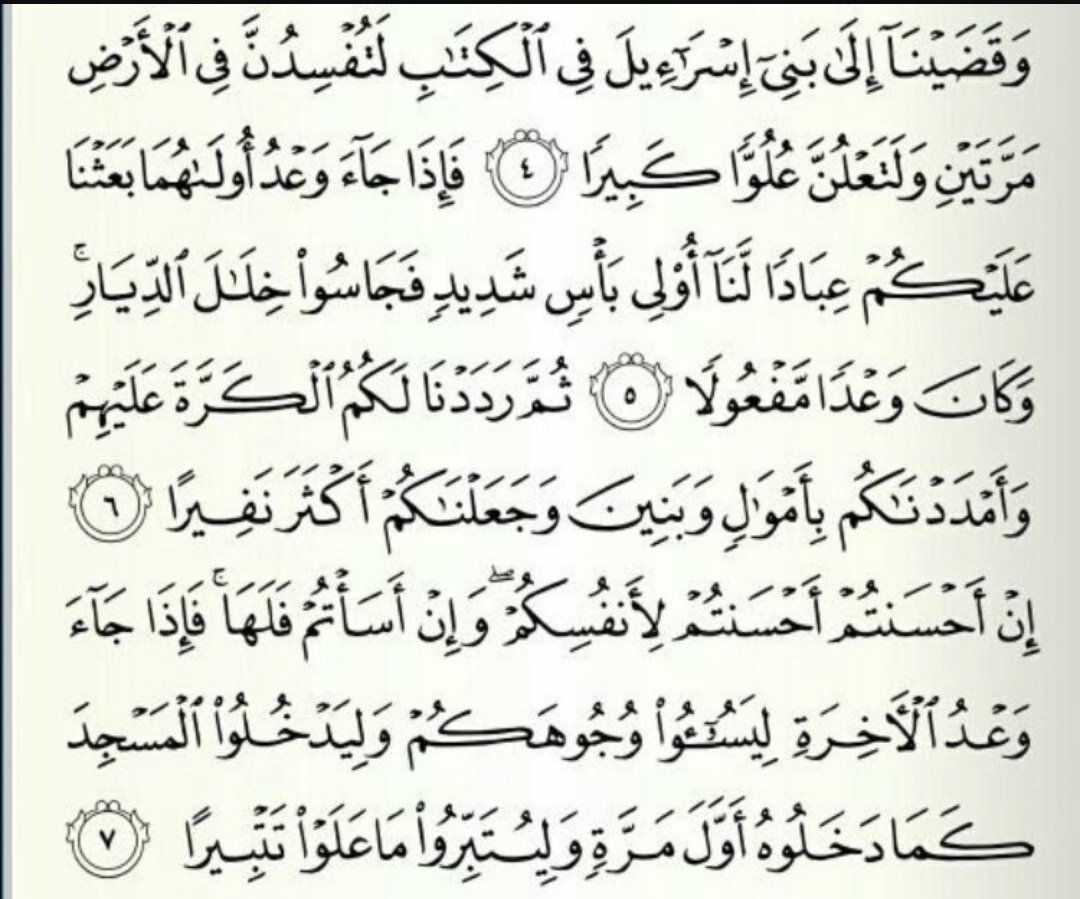 وَقَضَيْنَآ إِلَىٰ بَنِىٓ إِسْرَٰٓءِيلَ فِى ٱلْكِتَٰبِ لَتُفْسِدُنَّ فِى ٱلْأَرْضِ
مَرَّتَيْنِ وَلَتَعْلُنَّ عُلُوًّا كَبِيرًا ٤ فَإِذَا جَآءَ وَعْدُ أُولَىٰهُمَا بَعَثْنَا
عَلَيْكُمْ عِبَادًا لَّنَآ أُو۟لِى بَأْسٍ شَدِيدٍ فَجَاسُوا۟ خِلَٰلَ ٱلدِّيَارِ ۚ
وَكَانَ وَعْدًا مَّفْعُولًا ٥ ثُمَّ رَدَدْنَا لَكُمُ ٱلْكَرَّةَ عَلَيْهِمْ
وَأَمْدَدْنَٰكُم بِأَمْوَٰلٍ وَبَنِينَ وَجَعَلْنَٰكُمْ أَكْثَرَ نَفِيرًا ٦
إِنْ أَحْسَنتُمْ أَحْسَنتُمْ لِأَنفُسِكُمْ ۖ وَإِنْ أَسَأْتُمْ فَلَهَا ۚ فَإِذَا جَآءَ
وَعْدُ ٱلْـَٔاخِرَةِ لِيَسُۥٓـُٔوا۟ وُجُوهَكُمْ وَلِيَدْخُلُوا۟ ٱلْمَسْجِدَ
كَمَا دَخَلُوهُ أَوَّلَ مَرَّةٍ وَلِيُتَبِّرُوا۟ مَا عَلَوْا۟ تَتْبِيرًا ٧